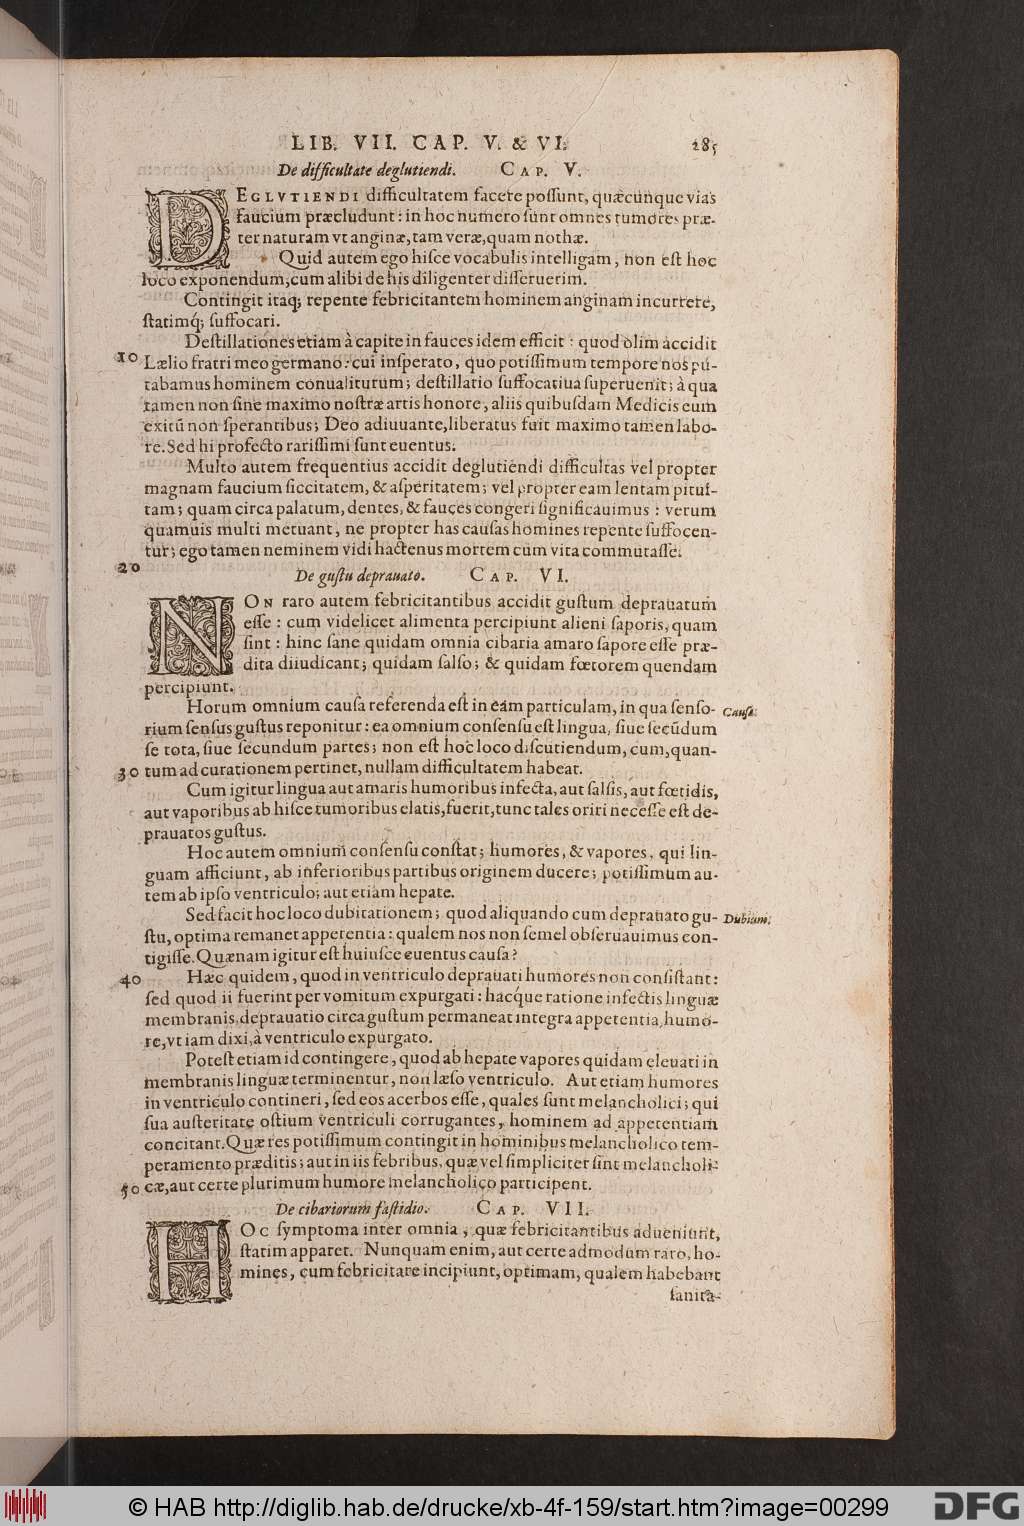 LIB. VII. CAP. V. & VI. 285
De difficultate deglutiendi. CAP. V.
DEGLVTIENDI difficultatem facere possunt, quæcunque vias
faucium præcludunt: in hoc numero sunt omnes tumores præ-
ter naturam vt anginæ, tam veræ, quam nothæ.
Quid autem ego hisce vocabulis intelligam, non est hoc
loco exponendum, cum alibi de his diligenter disseruerim.
Contingit itaq; repente febricitantem hominem anginam incurrere,
statimq; suffocari.
Destillationes etiam à capite in fauces idem efficit: quod olim accidit
10 Lælio fratri meo germano: cui insperato, quo potissimum tempore nos pu-
tabamus hominem conualiturum; destillatio suffocatiua superuenit; à qua
tamen non sine maximo nostræ artis honore, aliis quibusdam Medicis eum
exitū non sperantibus; Deo adiuuante, liberatus fuit maximo tamen labo-
re. Sed hi profecto rarissimi sunt euentus.
Multo autem frequentius accidit deglutiendi difficultas vel propter
magnam faucium siccitatem, & asperitatem; vel propter eam lentam pitui-
tam; quam circa palatum, dentes, & fauces congeri significauimus: verum
quamuis multi metuant, ne propter has causas homines repente suffocen-
tur; ego tamen neminem vidi hactenus mortem cum vita commutasse.
20 De gustu deprauato. CAP. VI.
NON raro autem febricitantibus accidit gustum deprauatum
esse: cum videlicet alimenta percipiunt alieni saporis, quam
sint: hinc sane quidam omnia cibaria amaro sapore esse præ-
dita diiudicant; quidam salso; & quidam fœtorem quendam
percipiunt.
Horum omnium causa referenda est in eam particulam, in qua senso- Causa.
rium sensus gustus reponitur: ea omnium consensu est lingua, siue secūdum
se tota, siue secundum partes; non est hoc loco discutiendum, cum, quan-
30 tum ad curationem pertinet, nullam difficultatem habeat.
Cum igitur lingua aut amaris humoribus infecta, aut salsis, aut fœtidis,
aut vaporibus ab hisce tumoribus elatis, fuerit, tunc tales oriri necesse est de-
prauatos gustus.
Hoc autem omnium consensu constat; humores, & vapores, qui lin-
guam afficiunt, ab inferioribus partibus originem ducere; potissimum au-
tem ab ipso ventriculo; aut etiam hepate.
Sed facit hoc loco dubitationem; quod aliquando cum deprauato gu- Dubium.
stu, optima remanet appetentia: qualem nos non semel obseruauimus con-
tigisse. Quænam igitur est huiusce euentus causa?
40 Hæc quidem, quod in ventriculo deprauati humores non consistant:
sed quod ii fuerint per vomitum expurgati: hacque ratione infectis linguæ
membranis, deprauatio circa gustum permaneat integra appetentia, humo-
re, vt iam dixi, à ventriculo expurgato.
Potest etiam id contingere, quod ab hepate vapores quidam eleuati in
membranis linguæ terminentur, non læso ventriculo. Aut etiam humores
in ventriculo contineri, sed eos acerbos esse, quales sunt melancholici; qui
sua austeritate ostium ventriculi corrugantes, hominem ad appetentiam
concitant. Quæ res potissimum contingit in hominibus melancholico tem-
peramento præditis; aut in iis febribus, quæ vel simpliciter sint melancholi-
50 cæ, aut certe plurimum humore melancholico participent.
De cibariorum fastidio. CAP. VII.
HOC symptoma inter omnia, quæ febricitantibus adueniunt,
statim apparet. Nunquam enim, aut certe admodum raro, ho-
mines, cum febricitare incipiunt, optimam, qualem habebant
sanita-
© HAB http://diglib.hab.de/drucke/xb-4f-159/start.htm?image=00299
DFG